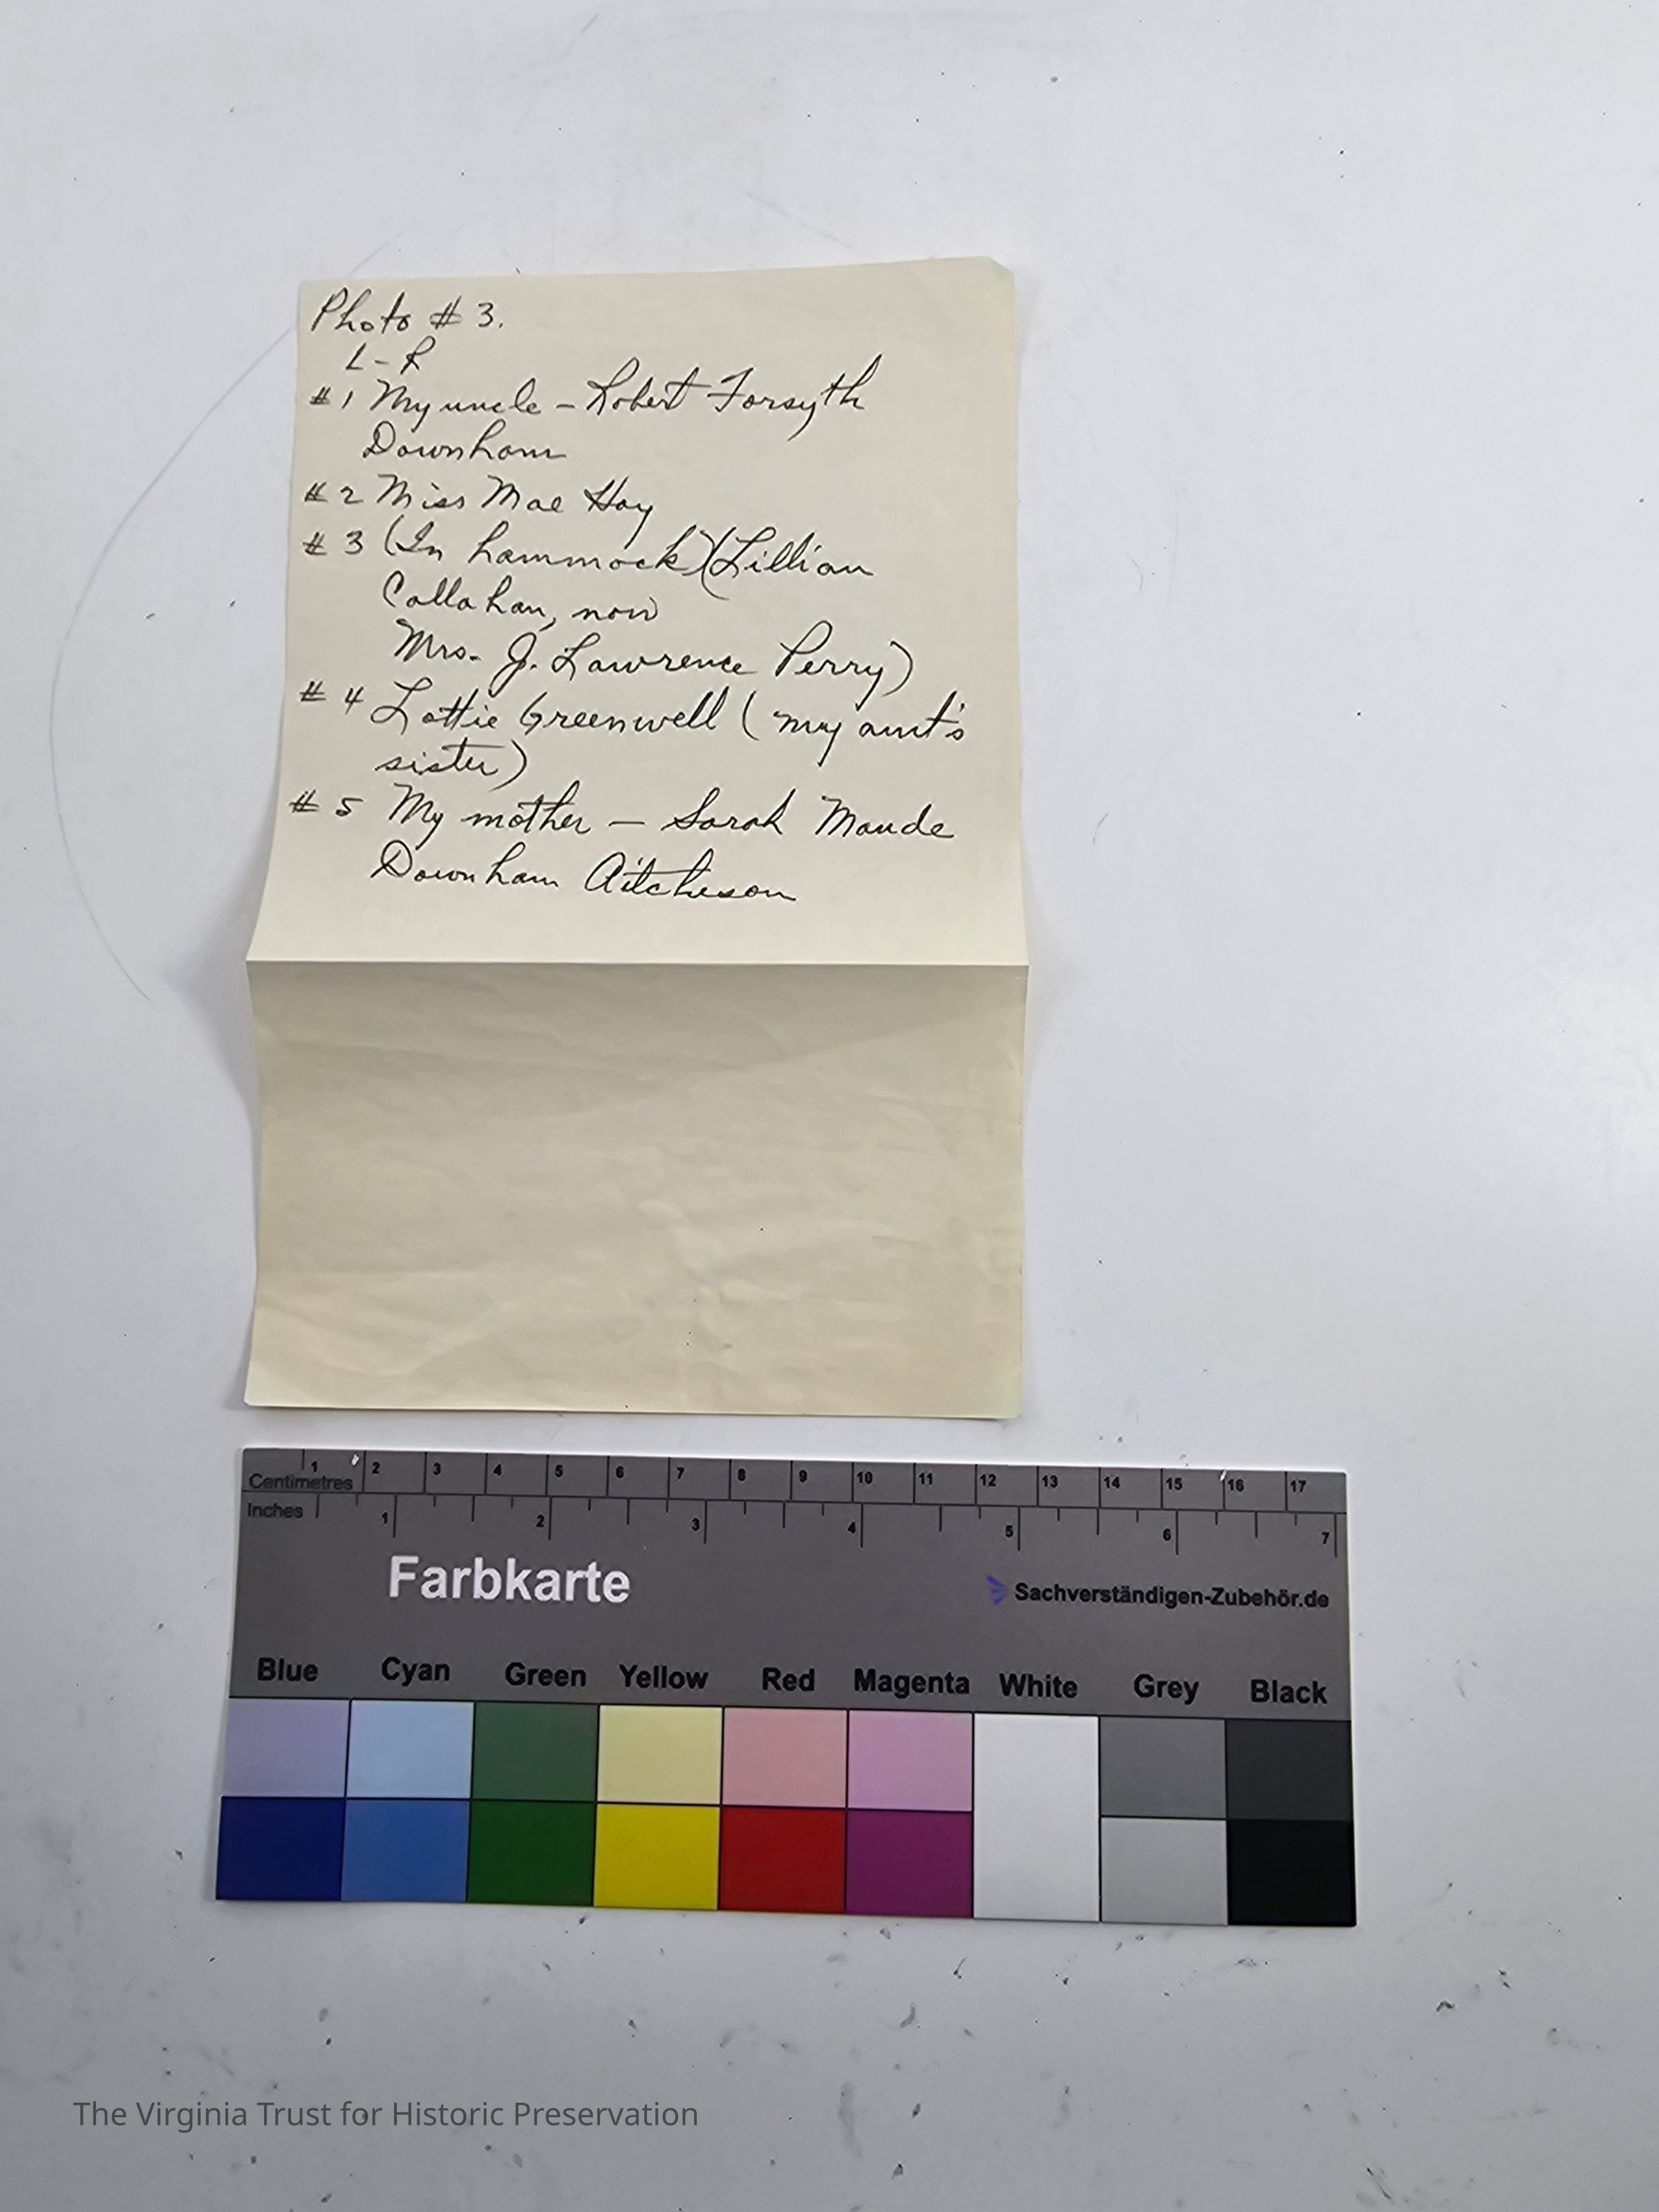 Photo # 3.
L-R
# 1 My uncle - Robert Forsyth
Downham
# 2 Miss Mae Hoy
# 3 (In hammock)(Lillian
Callahan, now
Mrs. J. Lawrence Perry)
# 4 Lottie Greenwell (my aunt's
sister)
# 5 My mother — Sarah Maude
Downham Aitcheson
Centimetres 1 2 3 4 5 6 7 8 9 10 11 12 13 14 15 16 17
Inches 1 2 3 4 5 6 7
Farbkarte
Sachverständigen-Zubehör.de
Blue Cyan Green Yellow Red Magenta White Grey Black
The Virginia Trust for Historic Preservation